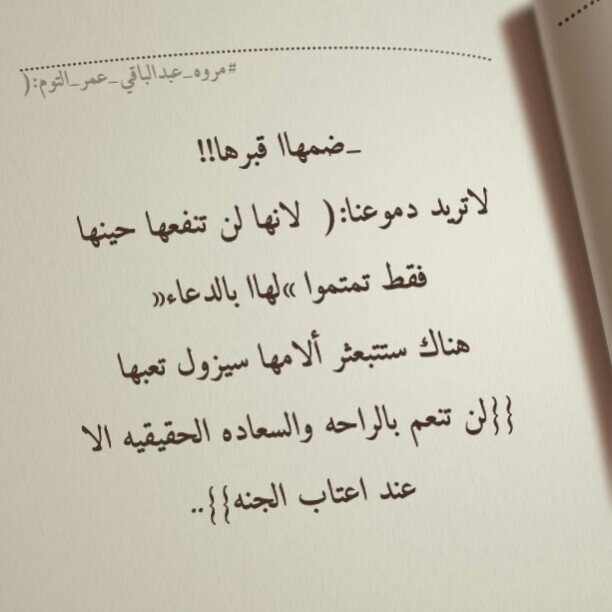 #مروه_عبدالباقي_عمر_التوم:(
_ضمهاا قبرها!!
لاتريد دموعنا:( لانها لن تنفعها حينها
فقط تمتموا »لهاا بالدعاء«
هناك ستتبعثر ألامها سيزول تعبها
}}لن تنعم بالراحه والسعاده الحقيقيه الا
عند اعتاب الجنه{{..